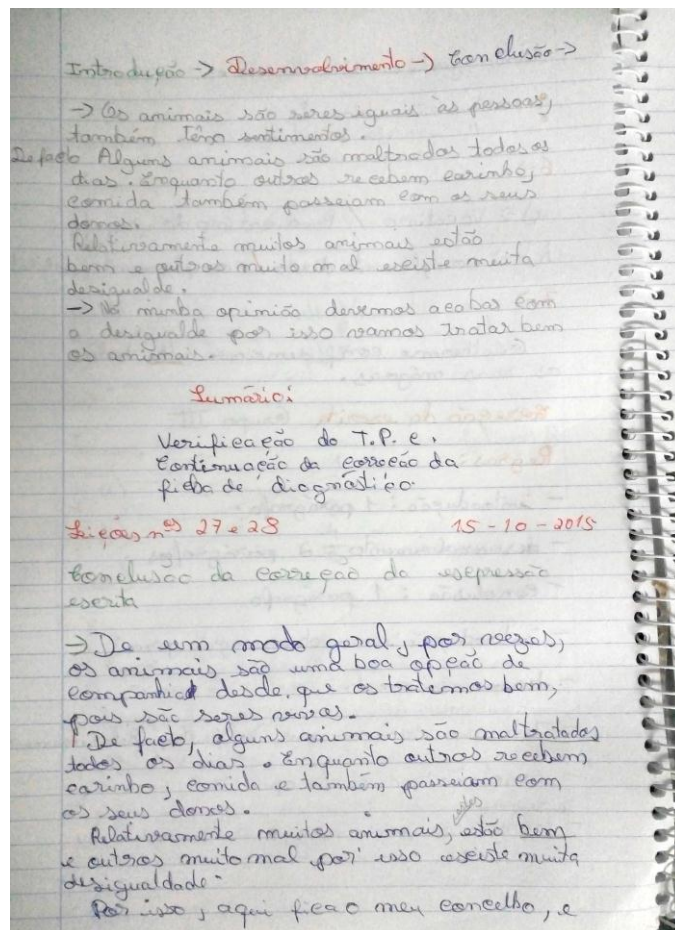 Introdução -> Desenvolvimento -> Conclusão ->
-> Os animais são seres iguais às pessoas,
também têm sentimentos.
De facto Alguns animais são maltrodos todos os
dias. Enquanto outros recebem carinho,
comida também passeiam com os seus
donos.
Relativamente muitos animais estão
bem e outros muito mal eseiste muita
desigualde.
-> Na minha opinião devemos acabar com
a desigualde por isso vamos tratar bem
os animais.
Sumário:
Verificação do T.P.C.
Continuação da correção da
ficha de diagnóstico.
Lições nºs 27 e 28 15-10-2015
Conclusão da correção da expressão
escrita
-> De um modo geral, por vezes,
os animais são uma boa opção de
companhia desde, que os tratemos bem,
pois são seres vivos.
De facto, alguns animais são maltratados
todos os dias. Enquanto outros recebem
carinho, comida e também passeiam com
os seus donos.
Relativamente muitos animais, eles estão bem
e outros muito mal por isso eseiste muita
desigualdade.
Por isso, aqui fica o meu concelho, e